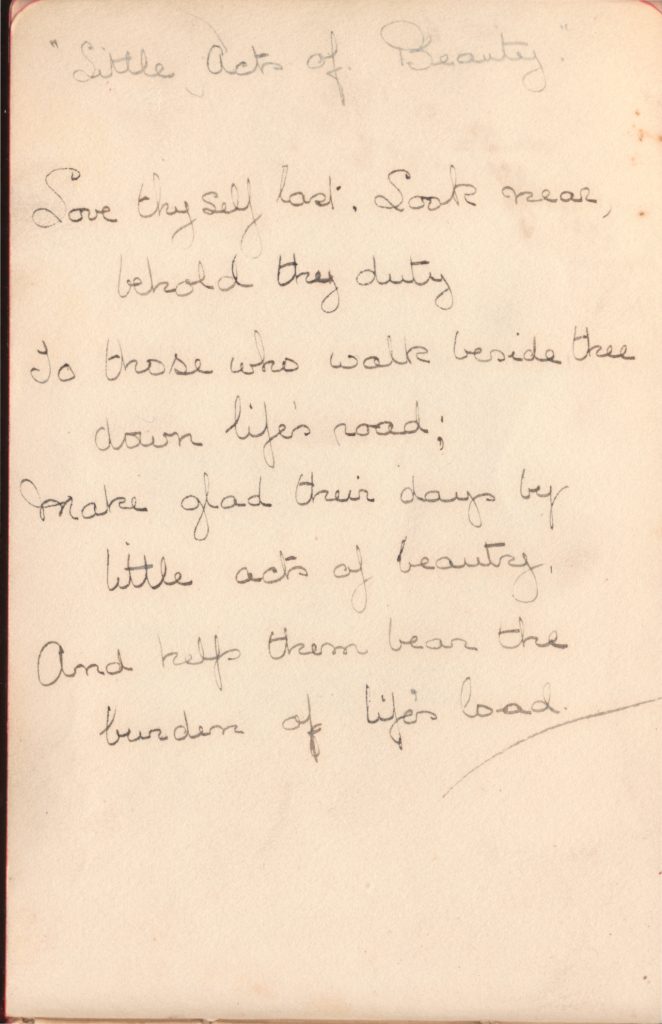 "Little Acts of Beauty."
Love thy self last. Look near,
behold thy duty
To those who walk beside thee
down life's road;
Make glad their days by
little acts of beauty,
And help them bear the
burden of life's load.